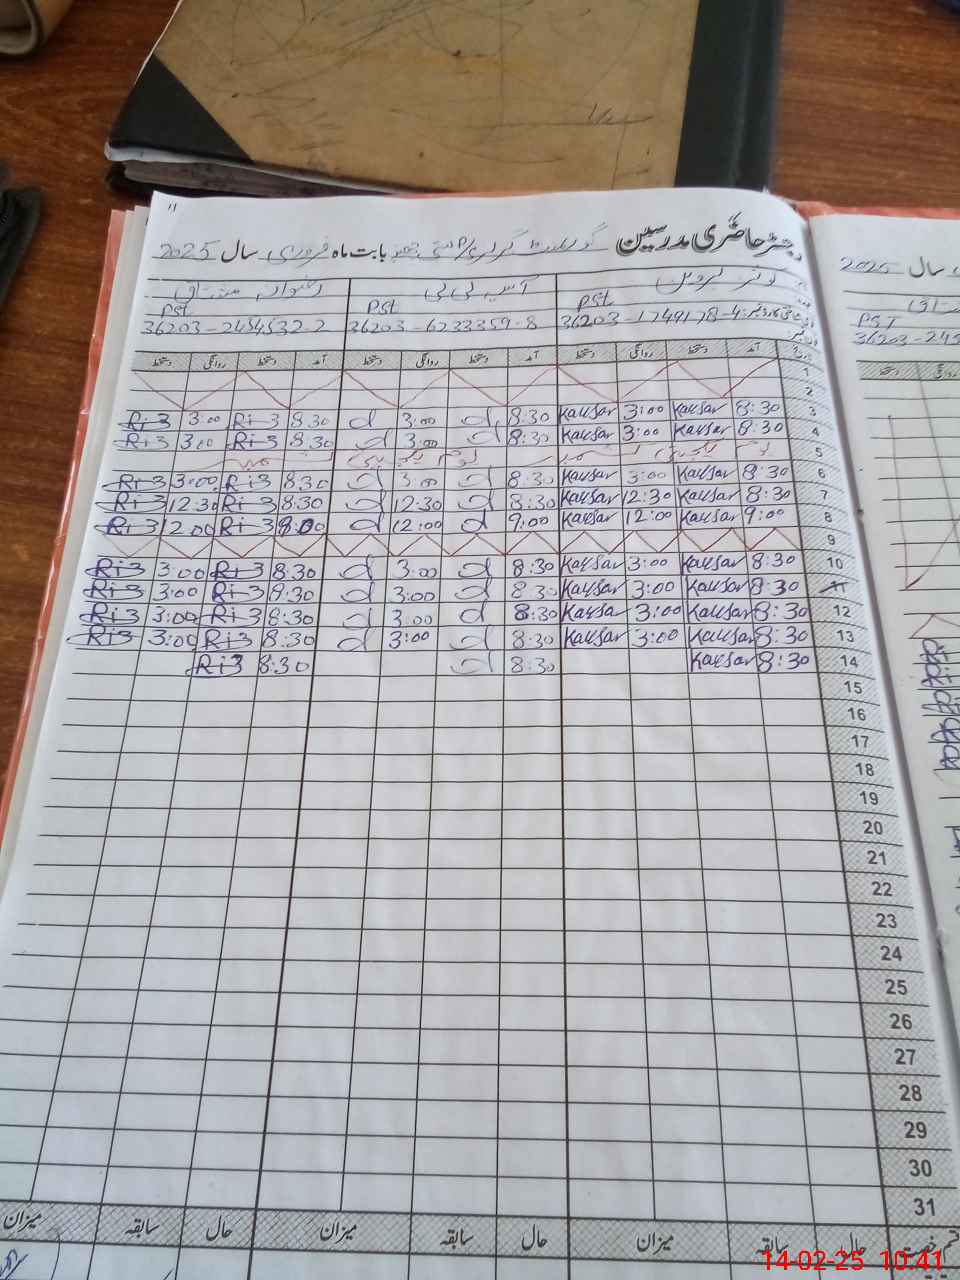 رجسٹر حاضری مدرسین گورنمنٹ گرلز P/S بستی بابت ماہ فروری سال 2025
کوثر پروین آسیہ بی بی رضوان مشتاق
PST PST PST
36203-1749178-4 36203-6233359-8 36203-2454532-2
تاریخ آمد دستخط روانگی دستخط آمد دستخط روانگی دستخط آمد دستخط روانگی دستخط
1
2
3 8:30 Kausar 3:00 Kausar 8:30 d 3:00 d 8:30 Ri3 3:00 Ri3
4 8:30 Kausar 3:00 Kausar 8:30 d 3:00 d 8:30 Ri3 3:00 Ri3
5 یوم یکجہتی کشمیر یوم یکجہتی کشمیر
6 8:30 Kausar 3:00 Kausar 8:30 d 3:00 d 8:30 Ri3 3:00 Ri3
7 8:30 Kausar 12:30 Kausar 8:30 d 12:30 d 8:30 Ri3 12:30 Ri3
8 9:00 Kausar 12:00 Kausar 9:00 d 12:00 d Ri3 12:00 Ri3
9
10 8:30 Kausar 3:00 Kausar 8:30 d 3:00 d 8:30 Ri3 3:00 Ri3
11 8:30 Kausar 3:00 Kausar 8:30 d 3:00 d 8:30 Ri3 3:00 Ri3
12 8:30 Kausar 3:00 Kausar 8:30 d 3:00 d 8:30 Ri3 3:00 Ri3
13 8:30 Kausar 3:00 Kausar 8:30 d 3:00 d 8:30 Ri3 3:00 Ri3
14 8:30 Kausar 8:30 d 8:30 Ri3
15
16
17
18
19
20
21
22
23
24
25
26
27
28
29
30
31
حال سابقہ میزان حال سابقہ میزان حال سابقہ میزان
سال 2025
PST
36203-245
14-02-25 10:41